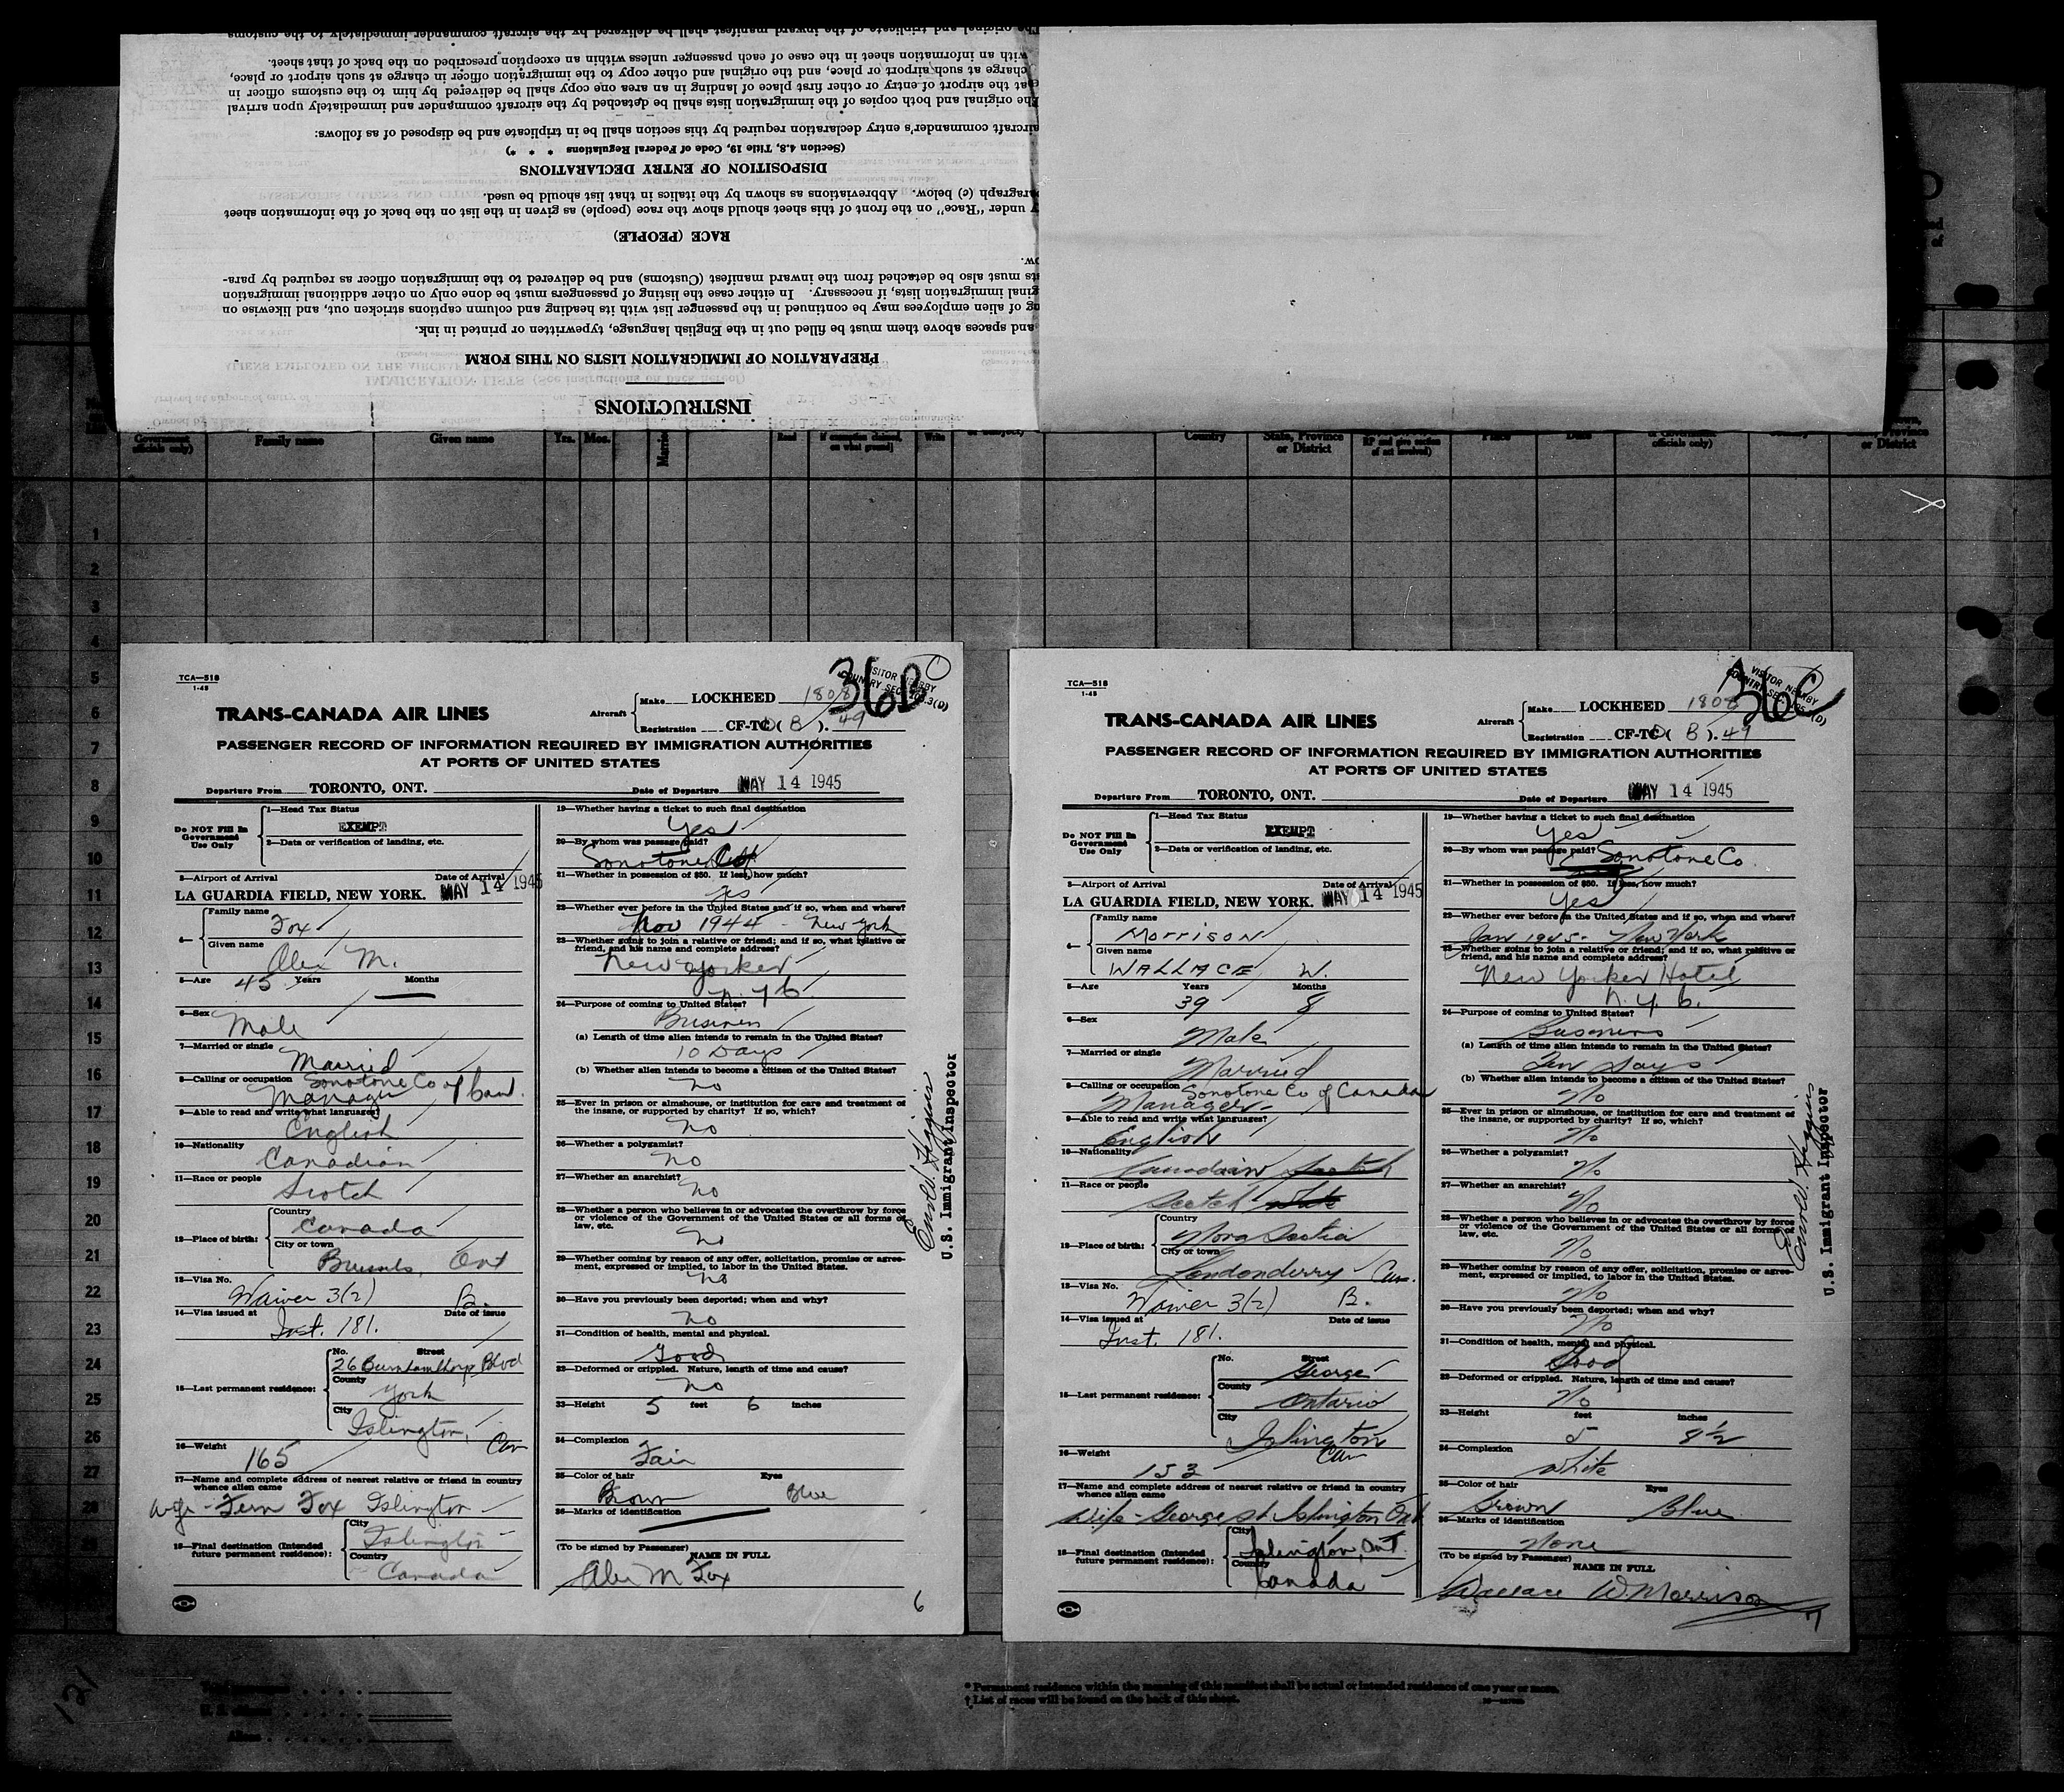 INSTRUCTIONS
PREPARATION OF IMMIGRATION LISTS ON THIS FORM
and spaces above them must be filled out in the English language, typewritten or printed in ink.
of alien employees may be continued in the passenger list with its heading and column captions stricken out, and likewise on
immigration lists, if necessary. In either case the listing of passengers must be done only on other additional immigration
must also be detached from the inward manifest (Customs) and be delivered to the immigration officer as required by para-
RACE (PEOPLE)
under "Race" on the front of this sheet should show the race (people) as given in the list on the back of the information sheet
paragraph (c) below. Abbreviations as shown by the italics in that list should be used.
DISPOSITION OF ENTRY DECLARATIONS
(Section 4.8, Title 19, Code of Federal Regulations * * *)
aircraft commander's entry declaration required by this section shall be in triplicate and be disposed of as follows:
The original and both copies of the immigration lists shall be detached by the aircraft commander and immediately upon arrival
at the airport of entry or other first place of landing in an area one copy shall be delivered by him to the customs officer in
charge at such airport or place, and the original and other copy to the immigration officer in charge at such airport or place,
with an information sheet in the case of each passenger unless within an exception prescribed on the back of that sheet.
The original and triplicate of the inward manifest shall be delivered by the aircraft commander immediately to the customs
Family name Given name Yrs. Mos. Married Read Write
Country State, Province or District Place Date
1
2
3
4
5
6
7
8
9
10
11
12
13
14
15
16
17
18
19
20
21
22
23
24
25
26
27
28
29
30
TCA—518
36B
TRANS-CANADA AIR LINES
Aircraft Make LOCKHEED 1808
Registration CF-TC ( B ). 49
PASSENGER RECORD OF INFORMATION REQUIRED BY IMMIGRATION AUTHORITIES
AT PORTS OF UNITED STATES
Departure From TORONTO, ONT. Date of Departure MAY 14 1945
Do NOT Fill In Government Use Only
1—Head Tax Status
EXEMPT
2—Data or verification of landing, etc.
3—Airport of Arrival Date of Arrival
LA GUARDIA FIELD, NEW YORK. MAY 14 1945
4— Family name
Fox
Given name
Alex M.
5—Age 45 Years Months
6—Sex
Male
7—Married or single
Married
8—Calling or occupation Sonotone Co of Can.
Manager
9—Able to read and write what languages?
English
10—Nationality
Canadian
11—Race or people
Scotch
12—Place of birth: Country
Canada
City or town
Brussels, Ont
13—Visa No.
Waiver 3(2) B.
14—Visa issued at Date of issue
Inst. 181.
15—Last permanent residence: No. Street
26 Burnhamthorpe Blvd
County
York
City
Islington, Can
16—Weight
165
17—Name and complete address of nearest relative or friend in country whence alien came
Fern Fox Islington
18—Final destination (Intended future permanent residence): City
Islington
Country
Canada
19—Whether having a ticket to such final destination
Yes
20—By whom was passage paid?
Sonotone
21—Whether in possession of $50. If less, how much?
Yes
22—Whether ever before in the United States and if so, when and where?
Nov 1944 - New York
23—Whether going to join a relative or friend; and if so, what relative or friend, and his name and complete address?
New Yorker
N.Y.C.
24—Purpose of coming to United States?
Business
(a) Length of time alien intends to remain in the United States?
10 Days
(b) Whether alien intends to become a citizen of the United States?
No
25—Ever in prison or almshouse, or institution for care and treatment of the insane, or supported by charity? If so, which?
No
26—Whether a polygamist?
No
27—Whether an anarchist?
No
28—Whether a person who believes in or advocates the overthrow by force or violence of the Government of the United States or all forms of law, etc.
No
29—Whether coming by reason of any offer, solicitation, promise or agreement, expressed or implied, to labor in the United States.
No
30—Have you previously been deported; when and why?
No
31—Condition of health, mental and physical.
Good
32—Deformed or crippled. Nature, length of time and cause?
No
33—Height 5 feet 6 inches
34—Complexion
Fair
35—Color of hair Eyes
Brown Blue
36—Marks of identification
(To be signed by Passenger) NAME IN FULL
Alex M Fox
6
U.S. Immigrant Inspector
TCA—518
36C
TRANS-CANADA AIR LINES
Aircraft Make LOCKHEED 1808
Registration CF-TC ( B ). 49
PASSENGER RECORD OF INFORMATION REQUIRED BY IMMIGRATION AUTHORITIES
AT PORTS OF UNITED STATES
Departure From TORONTO, ONT. Date of Departure MAY 14 1945
Do NOT Fill In Government Use Only
1—Head Tax Status
EXEMPT
2—Data or verification of landing, etc.
3—Airport of Arrival Date of Arrival
LA GUARDIA FIELD, NEW YORK. MAY 14 1945
4— Family name
MORRISON
Given name
WALLACE W.
5—Age Years Months
39 8
6—Sex
Male
7—Married or single
Married
8—Calling or occupation Sonotone Co of Canada
Manager
9—Able to read and write what languages?
English
10—Nationality
Canadian
11—Race or people
Scotch
12—Place of birth: Country
Nova Scotia
City or town
Londonderry Can.
13—Visa No.
Waiver 3(2) B.
14—Visa issued at Date of issue
Inst. 181.
15—Last permanent residence: No. Street
George
County
Ontario
City
Islington
Can
16—Weight
153
17—Name and complete address of nearest relative or friend in country whence alien came
Wife - George St Islington Ont
18—Final destination (Intended future permanent residence): City
Islington, Ont.
Country
Canada
19—Whether having a ticket to such final destination
Yes
20—By whom was passage paid? Sonotone Co
21—Whether in possession of $50. If less, how much?
Yes
22—Whether ever before in the United States and if so, when and where?
Jan 1945 - New York
23—Whether going to join a relative or friend; and if so, what relative or friend, and his name and complete address?
New Yorker Hotel
N.Y.C.
24—Purpose of coming to United States?
Business
(a) Length of time alien intends to remain in the United States?
Ten Days
(b) Whether alien intends to become a citizen of the United States?
No
25—Ever in prison or almshouse, or institution for care and treatment of the insane, or supported by charity? If so, which?
No
26—Whether a polygamist?
No
27—Whether an anarchist?
No
28—Whether a person who believes in or advocates the overthrow by force or violence of the Government of the United States or all forms of law, etc.
No
29—Whether coming by reason of any offer, solicitation, promise or agreement, expressed or implied, to labor in the United States.
No
30—Have you previously been deported; when and why?
No
31—Condition of health, mental and physical.
Good
32—Deformed or crippled. Nature, length of time and cause?
No
33—Height feet inches
5 8½
34—Complexion
White
35—Color of hair Eyes
Brown Blue
36—Marks of identification
None
(To be signed by Passenger) NAME IN FULL
Wallace W. Morrison
7
U.S. Immigrant Inspector
121
* Permanent residence within the meaning of this manifest shall be actual or intended residence of one year or more.
† List of races will be found on the back of this sheet.